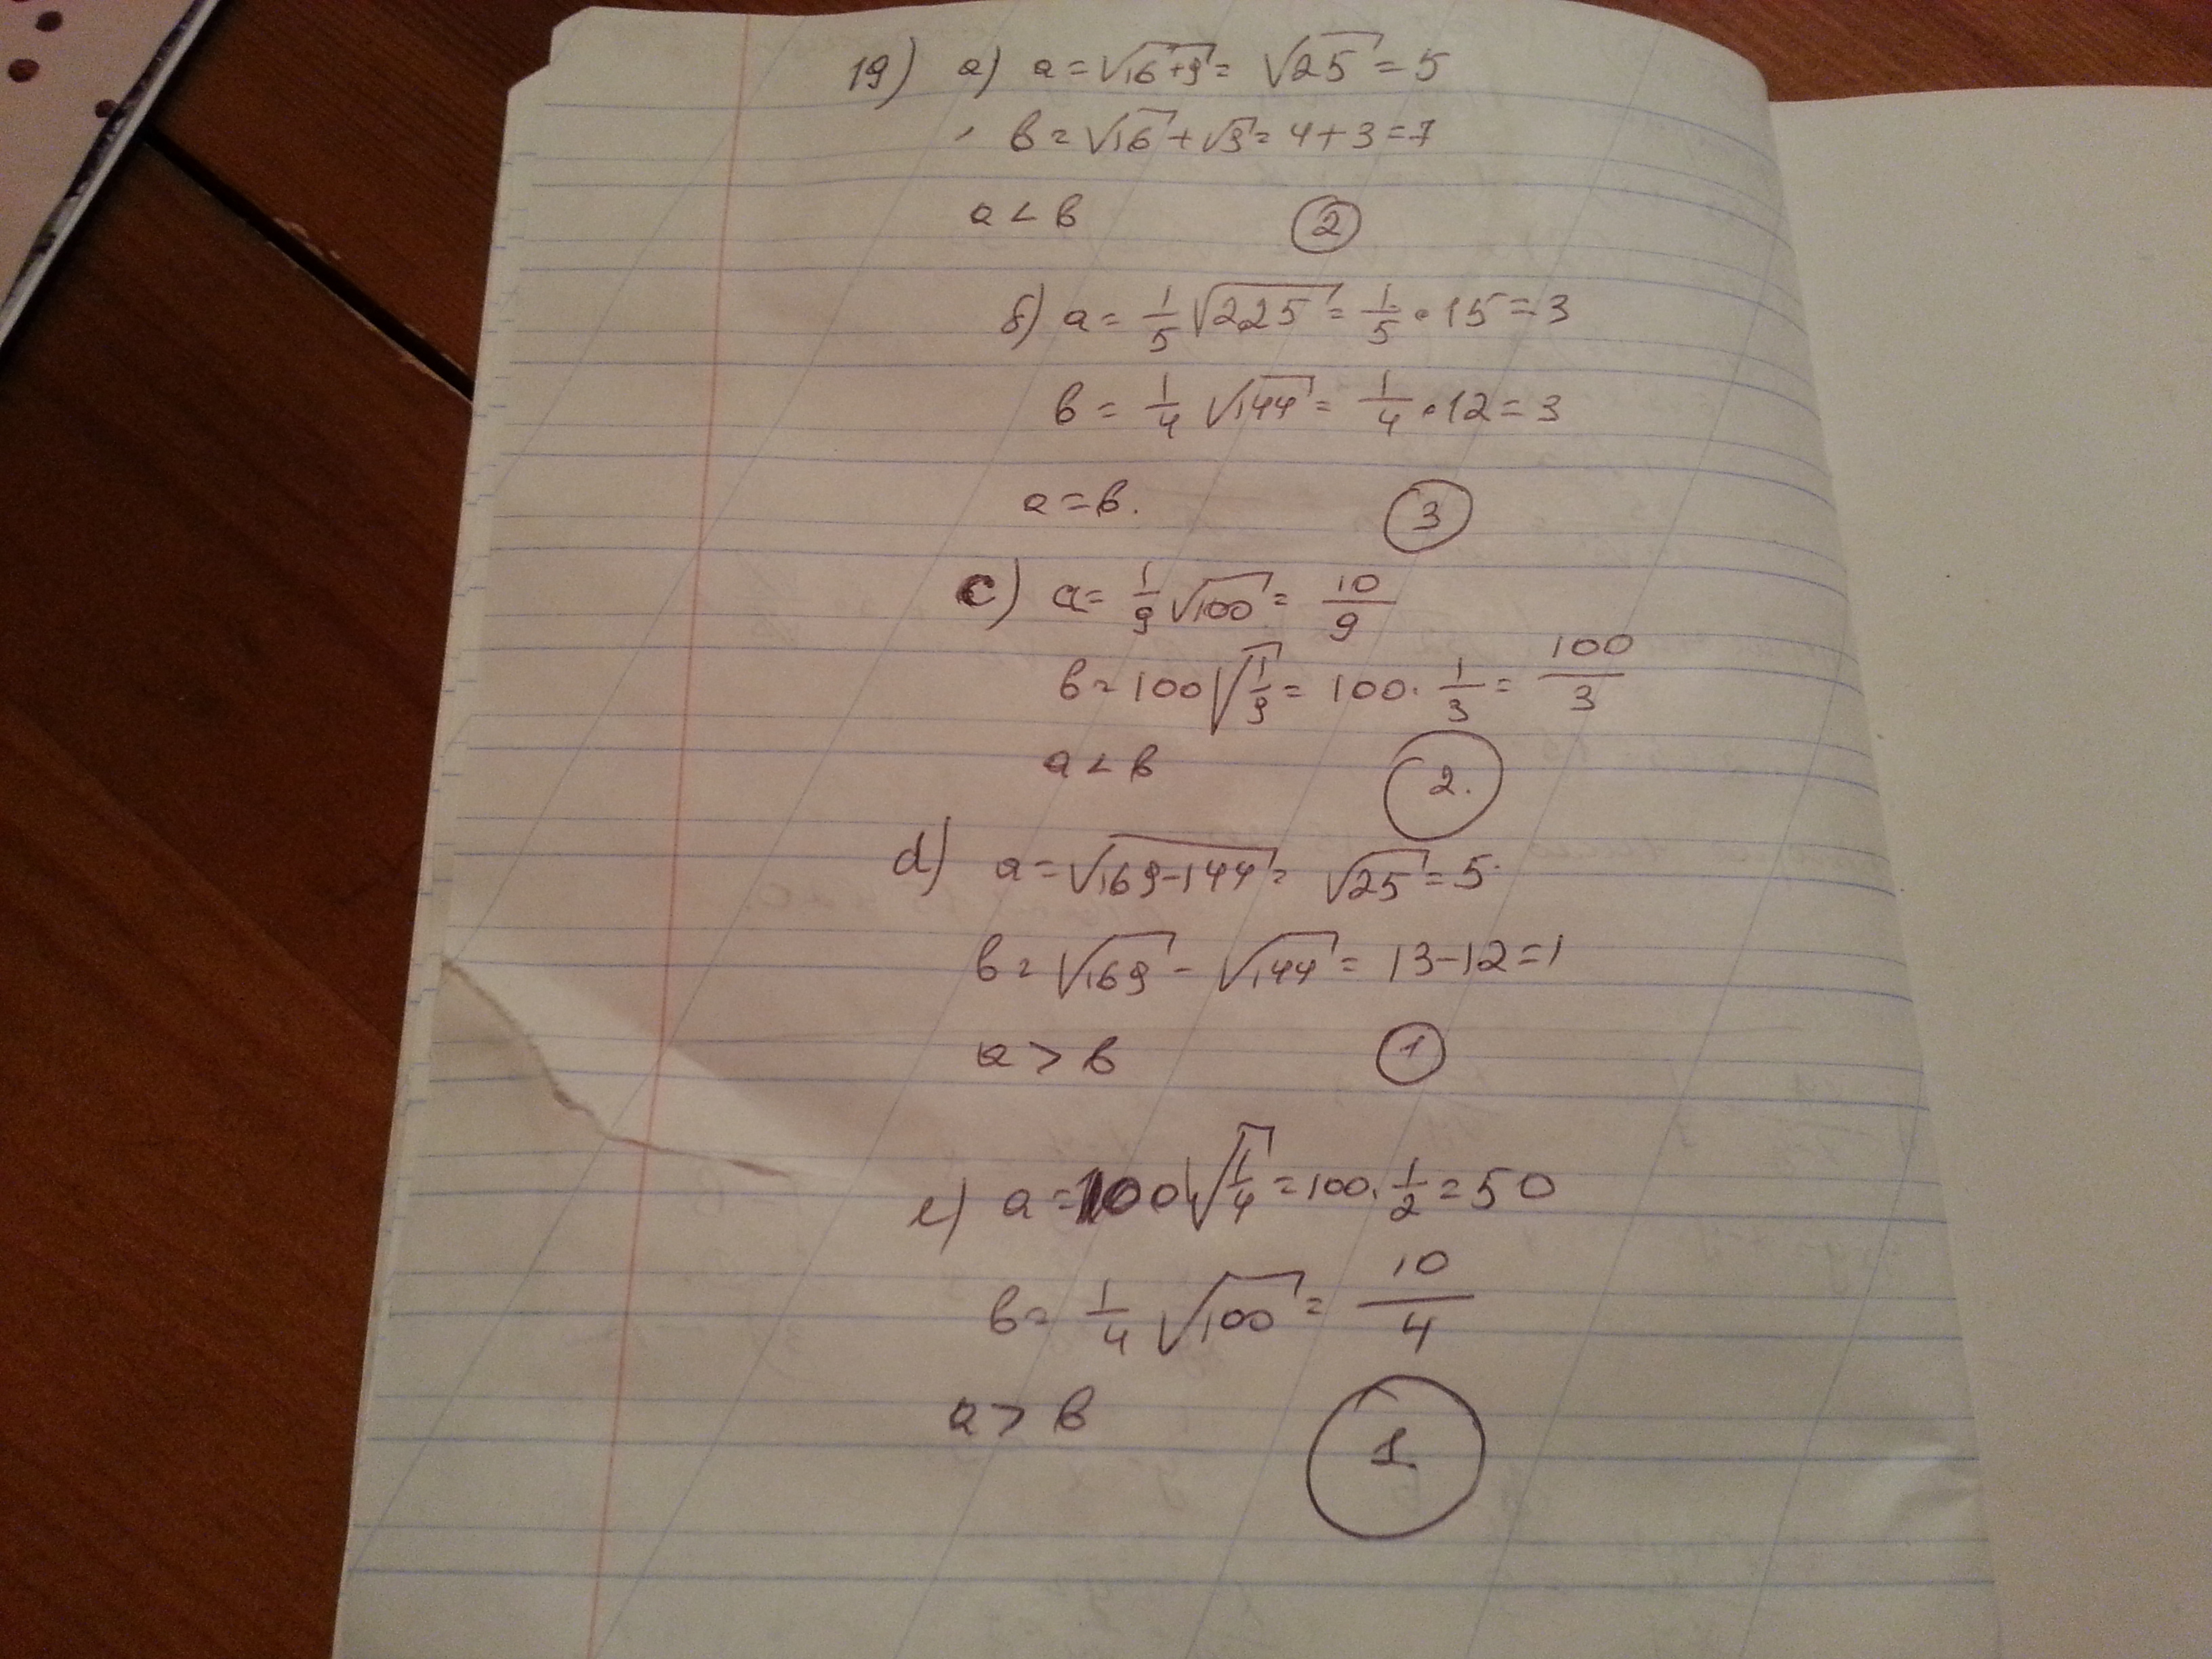 19) a) a = √(16+9) = √25 = 5
b = √16 + √9 = 4 + 3 = 7
a < b ②
б) a = 1/5 √225 = 1/5 • 15 = 3
b = 1/4 √144 = 1/4 • 12 = 3
a = b. ③
c) a = 1/9 √100 = 10/9
b = 100 √(1/9) = 100 · 1/3 = 100/3
a < b ②.
d) a = √(169-144) = √25 = 5
b = √169 - √144 = 13-12 = 1
a > b ①
e) a = 100 √(1/4) = 100 · 1/2 = 50
b = 1/4 √100 = 10/4
a > b ①